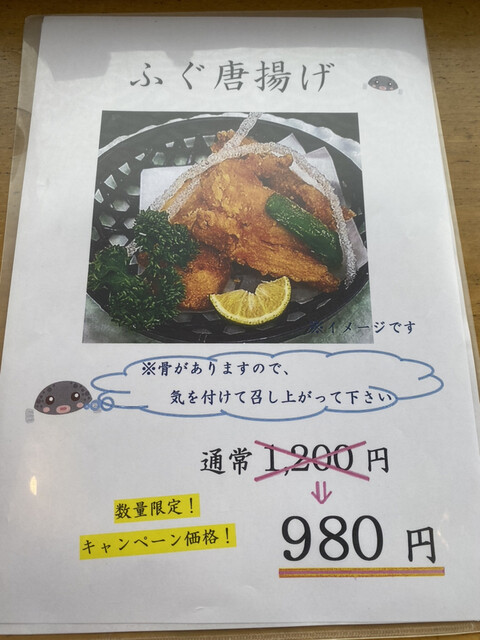 ふぐ唐揚げ
※イメージです
※骨がありますので、
気を付けて召し上がって下さい
通常 1,200 円
⇓
数量限定！
キャンペーン価格！
980 円